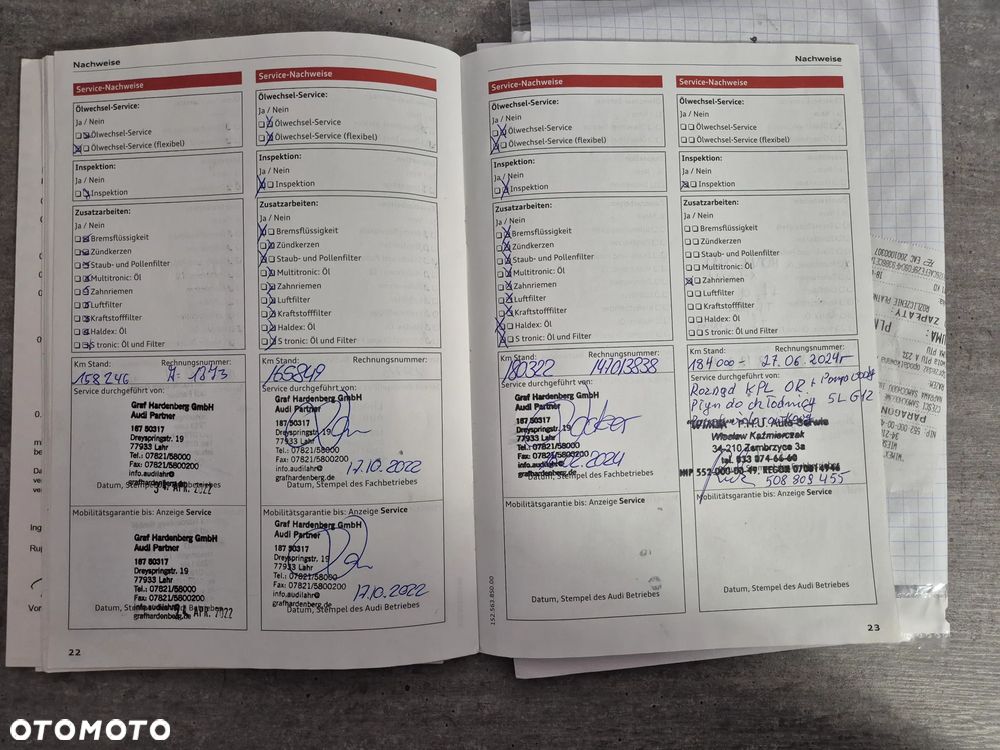 Nachweise
Service-Nachweise
Ölwechsel-Service:
Ja / Nein
Ölwechsel-Service
Ölwechsel-Service (flexibel)
Inspektion:
Ja / Nein
Inspektion
Zusatzarbeiten:
Ja / Nein
Bremsflüssigkeit
Zündkerzen
Staub- und Pollenfilter
Multitronic: Öl
Zahnriemen
Luftfilter
Kraftstofffilter
Haldex: Öl
S tronic: Öl und Filter
Km Stand: Rechnungsnummer:
158246 A: 1873
Service durchgeführt von:
Graf Hardenberg GmbH
Audi Partner
187 50317
Dreyspringstr. 19
77933 Lahr
Tel.: 07821/58000
Fax: 07821/5800200
info.audilahr@
grafhardenberg.de
Datum, Stempel
APR. 2022
Mobilitätsgarantie bis: Anzeige Service
Graf Hardenberg GmbH
Audi Partner
187 50317
Dreyspringstr. 19
77933 Lahr
Tel.: 07821/58000
Fax: 07821/5800200
info.audilahr@
grafhardenberg.de
APR. 2022
22
Service-Nachweise
Ölwechsel-Service:
Ja / Nein
Ölwechsel-Service
Ölwechsel-Service (flexibel)
Inspektion:
Ja / Nein
Inspektion
Zusatzarbeiten:
Ja / Nein
Bremsflüssigkeit
Zündkerzen
Staub- und Pollenfilter
Multitronic: Öl
Zahnriemen
Luftfilter
Kraftstofffilter
Haldex: Öl
S tronic: Öl und Filter
Km Stand: Rechnungsnummer:
165849
Service durchgeführt von:
Graf Hardenberg GmbH
Audi Partner
187 50317
Dreyspringstr. 19
77933 Lahr
Tel.: 07821/58000
Fax: 07821/5800200
info.audilahr@
grafhardenberg.de
17.10.2022
Datum, Stempel des Fachbetriebes
Mobilitätsgarantie bis: Anzeige Service
Graf Hardenberg GmbH
Audi Partner
187 50317
Dreyspringstr. 19
77933 Lahr
Tel.: 07821/58000
Fax: 07821/5800200
info.audilahr@
grafhardenberg.de
17.10.2022
Datum, Stempel des Audi Betriebes
Nachweise
Service-Nachweise
Ölwechsel-Service:
Ja / Nein
Ölwechsel-Service
Ölwechsel-Service (flexibel)
Inspektion:
Ja / Nein
Inspektion
Zusatzarbeiten:
Ja / Nein
Bremsflüssigkeit
Zündkerzen
Staub- und Pollenfilter
Multitronic: Öl
Zahnriemen
Luftfilter
Kraftstofffilter
Haldex: Öl
S tronic: Öl und Filter
Km Stand: Rechnungsnummer:
180322 147013838
Service durchgeführt von:
Graf Hardenberg GmbH
Audi Partner
187 50317
Dreyspringstr. 19
77933 Lahr
Tel.: 07821/58000
Fax: 07821/5800200
info.audilahr@
grafhardenberg.de
Datum, Stempel des Fachbetriebes
Mobilitätsgarantie bis: Anzeige Service
Datum, Stempel des Audi Betriebes
152.563.850.00
Service-Nachweise
Ölwechsel-Service:
Ja / Nein
Ölwechsel-Service
Ölwechsel-Service (flexibel)
Inspektion:
Ja / Nein
Inspektion
Zusatzarbeiten:
Ja / Nein
Bremsflüssigkeit
Zündkerzen
Staub- und Pollenfilter
Multitronic: Öl
Zahnriemen
Luftfilter
Kraftstofffilter
Haldex: Öl
S tronic: Öl und Filter
Km Stand: Rechnungsnummer:
184000 - 27.06.2024r
Service durchgeführt von:
Rozrząd KPL OR + Pompa wody
Płyn do chłodnicy 5L G12
P.H.U. Auto-Serwis
Wiesław Kaźmierczak
34-210 Zembrzyce 3a
tel. 033 874 66 60
508 809 455
Mobilitätsgarantie bis: Anzeige Service
Datum, Stempel des Audi Betriebes
23
OTOMOTO